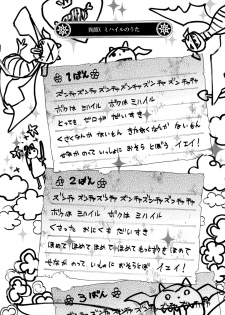 ミハイルのうた
1ばん
ズンチャチャズンチャチャズンチャチャズンチャチャ
ボクはミハイル ボクはミハイル
とっても ゼロが だいすき
くさくなんか ないもん きたなくなんか ないもん
せなかのって いっしょに おそらとぼう イェイ!
2ばん
ズンチャチャズンチャチャズンチャチャズンチャチャ
ボクは ミハイル ボクは ミハイル
くさった おにくも だいすき
ほめて ほめて ほめて ほめて もっとボクを ほめて
せなかのって いっしょに おそらとぼう イェイ!
3ばん